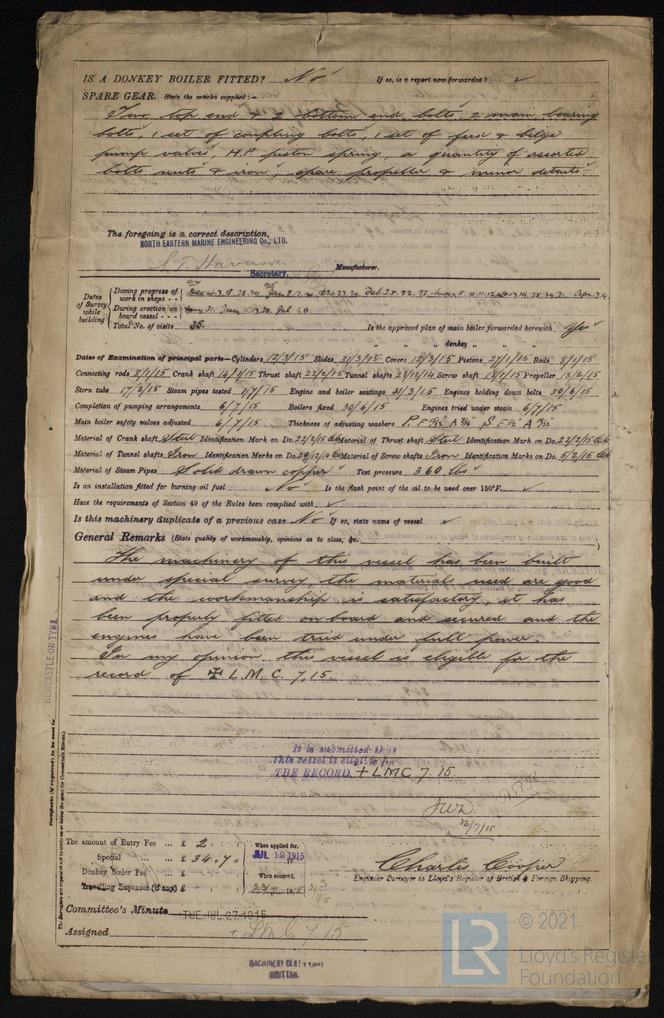 IS A DONKEY BOILER FITTED? No If so, is a report now forwarded? ✓
SPARE GEAR. State the articles supplied:—
Two top end & 2 bottom end bolts, 2 main bearing
bolts, 1 set of coupling bolts, 1 set of feed & bilge
pump valves, H.P. piston spring, a quantity of assorted
bolts nuts & iron, spare propeller & minor details
The foregoing is a correct description,
NORTH EASTERN MARINE ENGINEERING Co., LTD.
Secretary. Manufacturer.
Dates of Survey while building
During progress of work in shops - -
During erection on board vessel - - -
Total No. of visits 35. Is the approved plan of main boiler forwarded herewith Yes
" " " donkey "
Dates of Examination of principal parts—Cylinders 12/3/15 Slides 31/3/15 Covers 12/3/15 Pistons 27/1/15 Rods 8/1/15
Connecting rods 8/1/15 Crank shaft Thrust shaft 22/2/15 Tunnel shafts 29/12/14 Screw shaft Propeller
Stern tube 17/3/15 Steam pipes tested Engine and boiler seatings 31/3/15 Engines holding down bolts 30/6/15
Completion of pumping arrangements 6/7/15 Boilers fixed 30/6/15 Engines tried under steam 6/7/15
Main boiler safety valves adjusted 6/7/15 Thickness of adjusting washers
Material of Crank shaft Steel Identification Mark on Do. 22/2/15 Material of Thrust shaft Steel Identification Mark on Do. 22/2/15
Material of Tunnel shafts Iron Identification Marks on Do. 29/12/14 Material of Screw shafts Iron Identification Marks on Do. 5/2/15
Material of Steam Pipes Solid drawn copper Test pressure 360 lbs
Is an installation fitted for burning oil fuel No Is the flash point of the oil to be used over 150°F. ✓
Have the requirements of Section 49 of the Rules been complied with ✓
Is this machinery duplicate of a previous case No If so, state name of vessel ✓
General Remarks (State quality of workmanship, opinions as to class, &c.
The machinery of this vessel has been built
under special survey, the material used are good
and the workmanship is satisfactory, it has
been properly fitted on board and secured and the
engines have been tried under full power.
In my opinion this vessel is eligible for the
record of ✠ L.M.C. 7,15.
NEWCASTLE-ON-TYNE
It is submitted that
this vessel is eligible for
THE RECORD. + LMC 7.15.
JWD.
The amount of Entry Fee ... £ 2 When applied for,
Special ... £ 34.7. JUL 19 1915
Donkey Boiler Fee ... £ When received,
Travelling Expenses (if any) £
Charles Cooper
Engineer Surveyor to Lloyd's Register of British & Foreign Shipping.
Committee's Minute TUE. JUL. 27. 1915
Assigned + LMC 7.15
MACHINERY CERTIFICATE
WRITTEN.
LR
© 2021
Lloyd's Register
Foundation